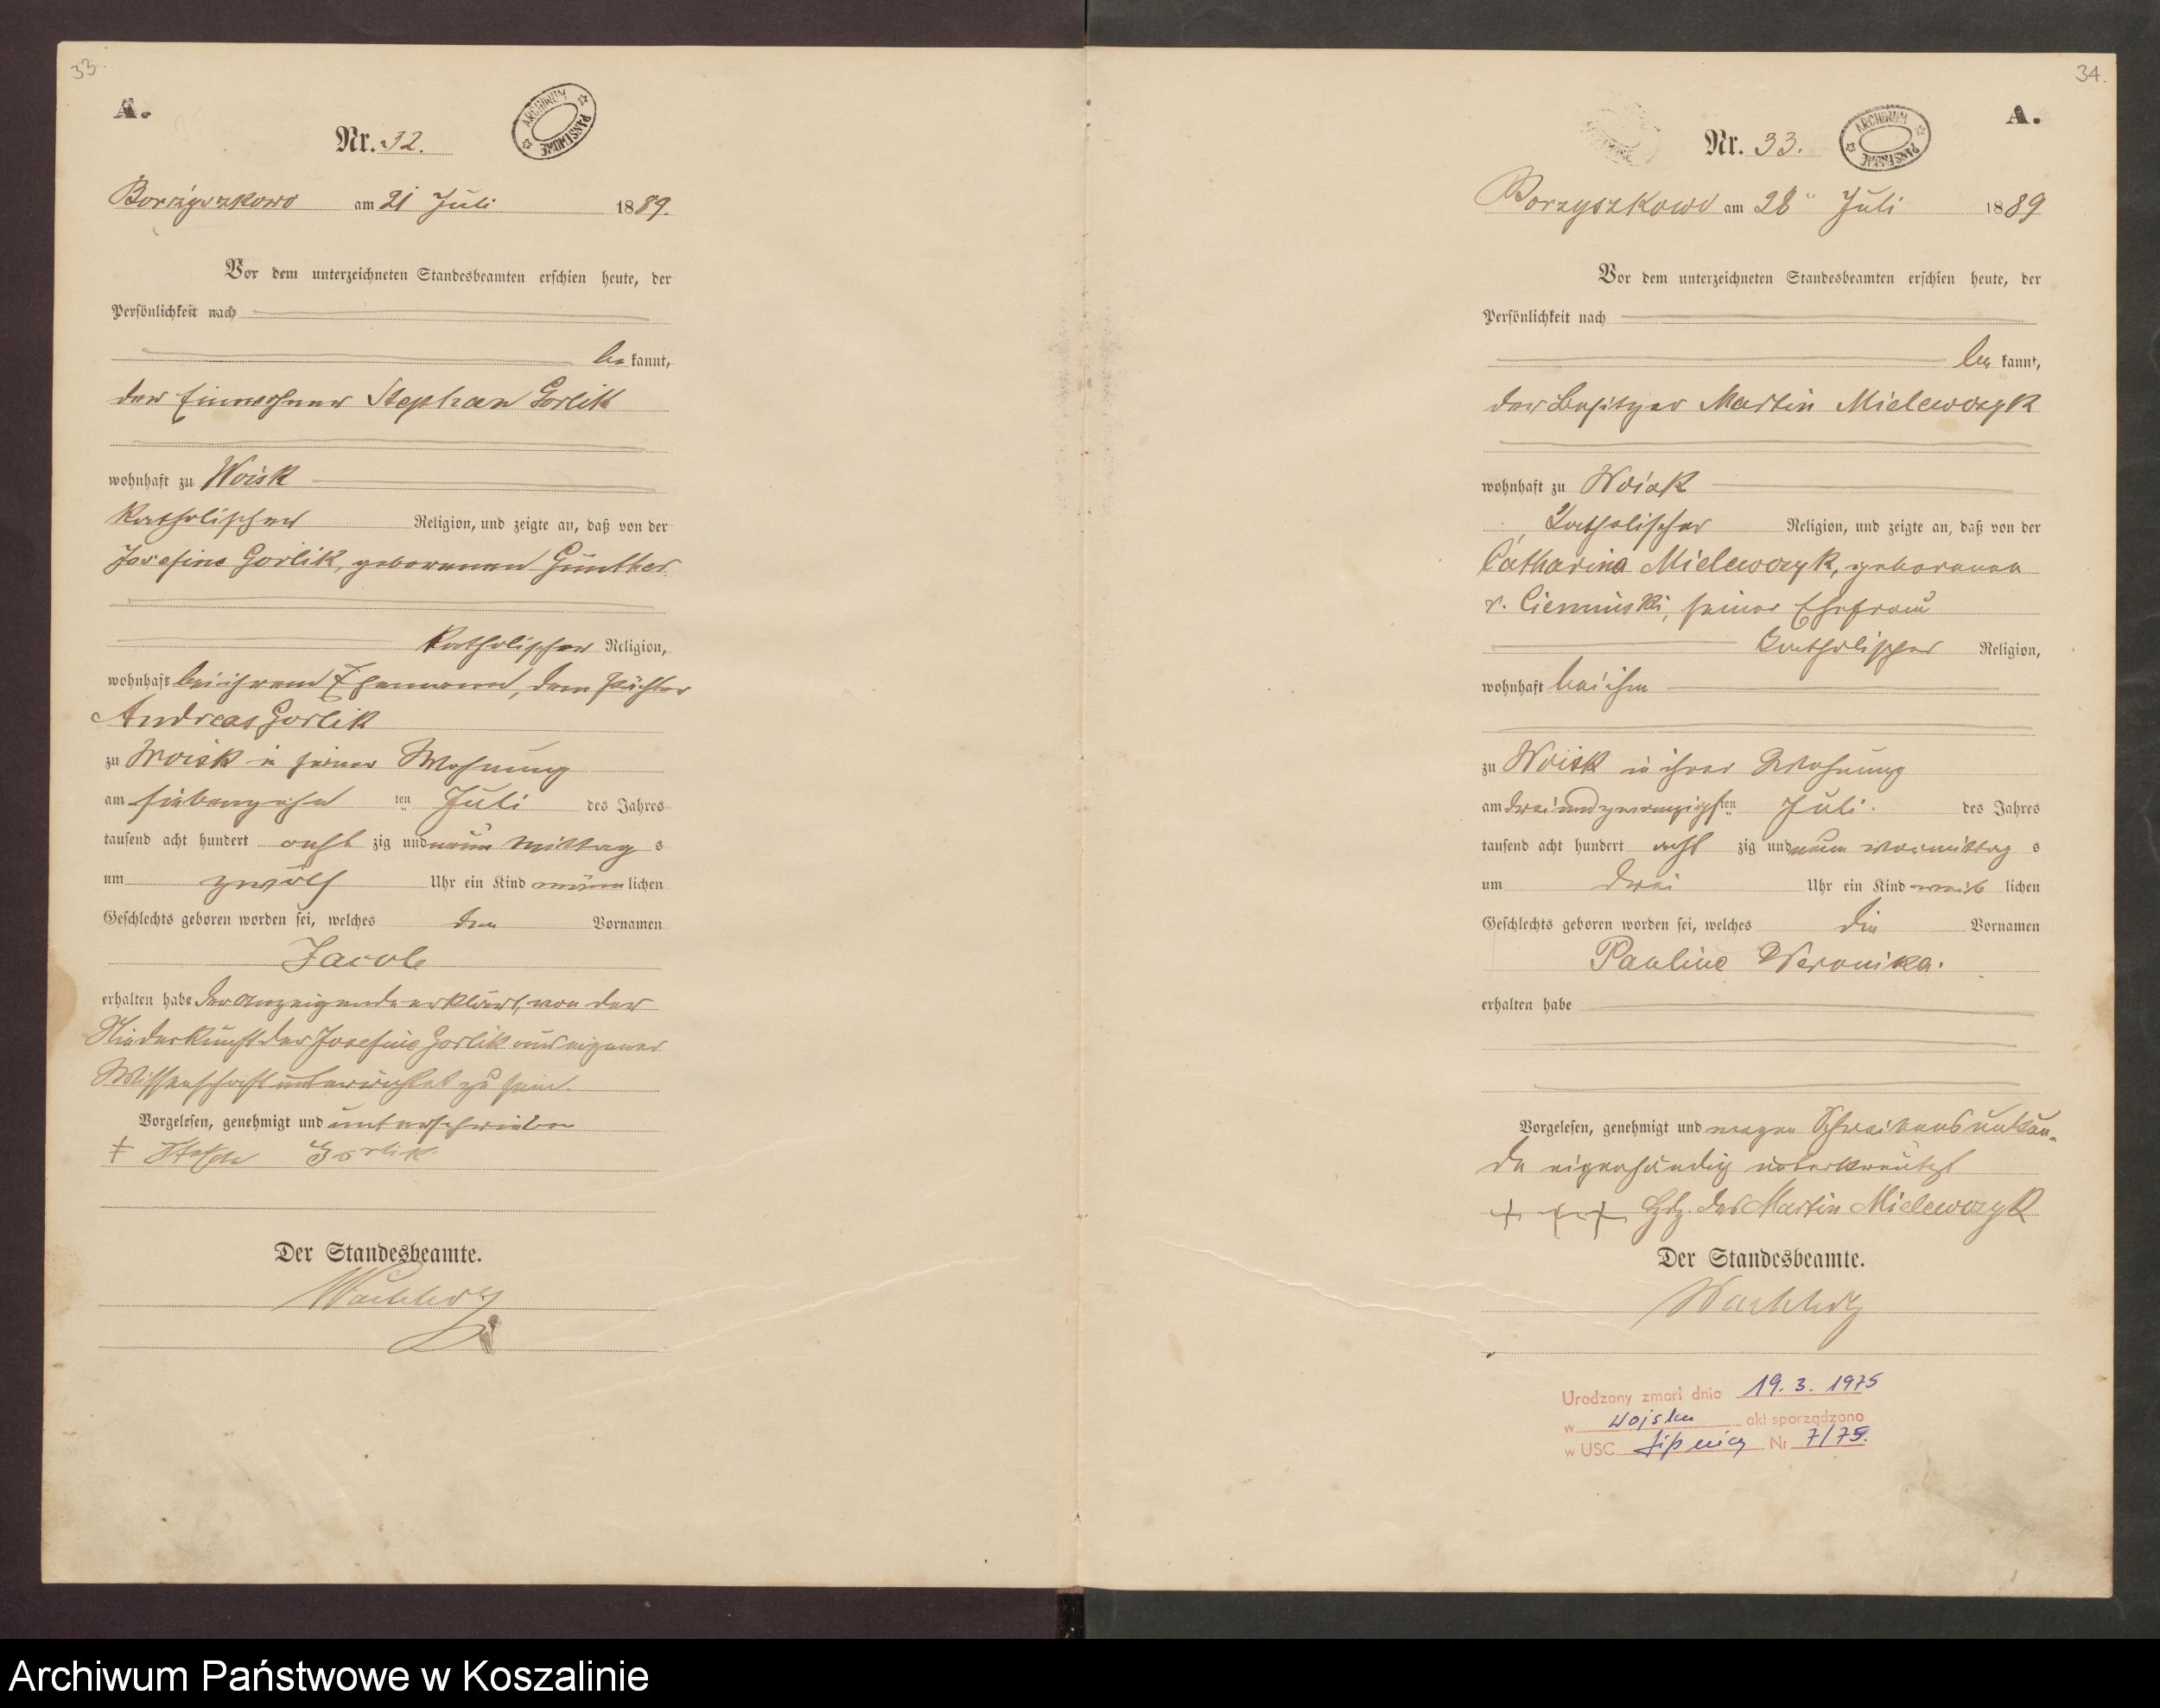 33.
A.
Nr. 32.
ARCHIWUM PAŃSTWOWE
Borzyszkowo am 21 Juli 1889.
Vor dem unterzeichneten Standesbeamten erschien heute, der
Persönlichkeit nach
be kannt,
der Einwohner Stephan Gorlik
wohnhaft zu Woisk
katholischer Religion, und zeigte an, daß von der
Josefine Gorlik, geborenen Günther
katholischer Religion,
wohnhaft bei ihrem Ehemann, dem Pächter
Andreas Gorlik
zu Woisk in seiner Wohnung
am siebenzehn ten Juli des Jahres
tausend acht hundert acht zig und neun Mittag s
um zwölf Uhr ein Kind männ lichen
Geschlechts geboren worden sei, welches den Vornamen
Jacob
erhalten habe der Anzeigende erklärt, von der
Niederkunft der Josefine Gorlik aus eigener
Wissenschaft unterrichtet zu sein.
Vorgelesen, genehmigt und unterschrieben
Gorlik
Der Standesbeamte.
34.
A.
Nr. 33.
ARCHIWUM PAŃSTWOWE
Borzyszkowo am 28 Juli 1889
Vor dem unterzeichneten Standesbeamten erschien heute, der
Persönlichkeit nach
be kannt,
der Besitzer Martin Mielewczyk
wohnhaft zu Woisk
katholischer Religion, und zeigte an, daß von der
Catharina Mielewczyk, geborenen
v. Ciemiński, seiner Ehefrau
katholischer Religion,
wohnhaft bei ihm
zu Woisk in ihrer Wohnung
am dreiundzwanzigsten Juli. des Jahres
tausend acht hundert acht zig und neun Vormittag s
um drei Uhr ein Kind weib lichen
Geschlechts geboren worden sei, welches die Vornamen
Pauline Weronika.
erhalten habe
Vorgelesen, genehmigt und wegen Schreibensunkun-
de eigenhändig unterkreuzt
+ + + Hdz. des Martin Mielewczyk
Der Standesbeamte.
Urodzony zmarł dnia 19.3.1975
w Wojsku akt sporządzono
w USC Lipnicy Nr 7/75.
Archiwum Państwowe w Koszalinie